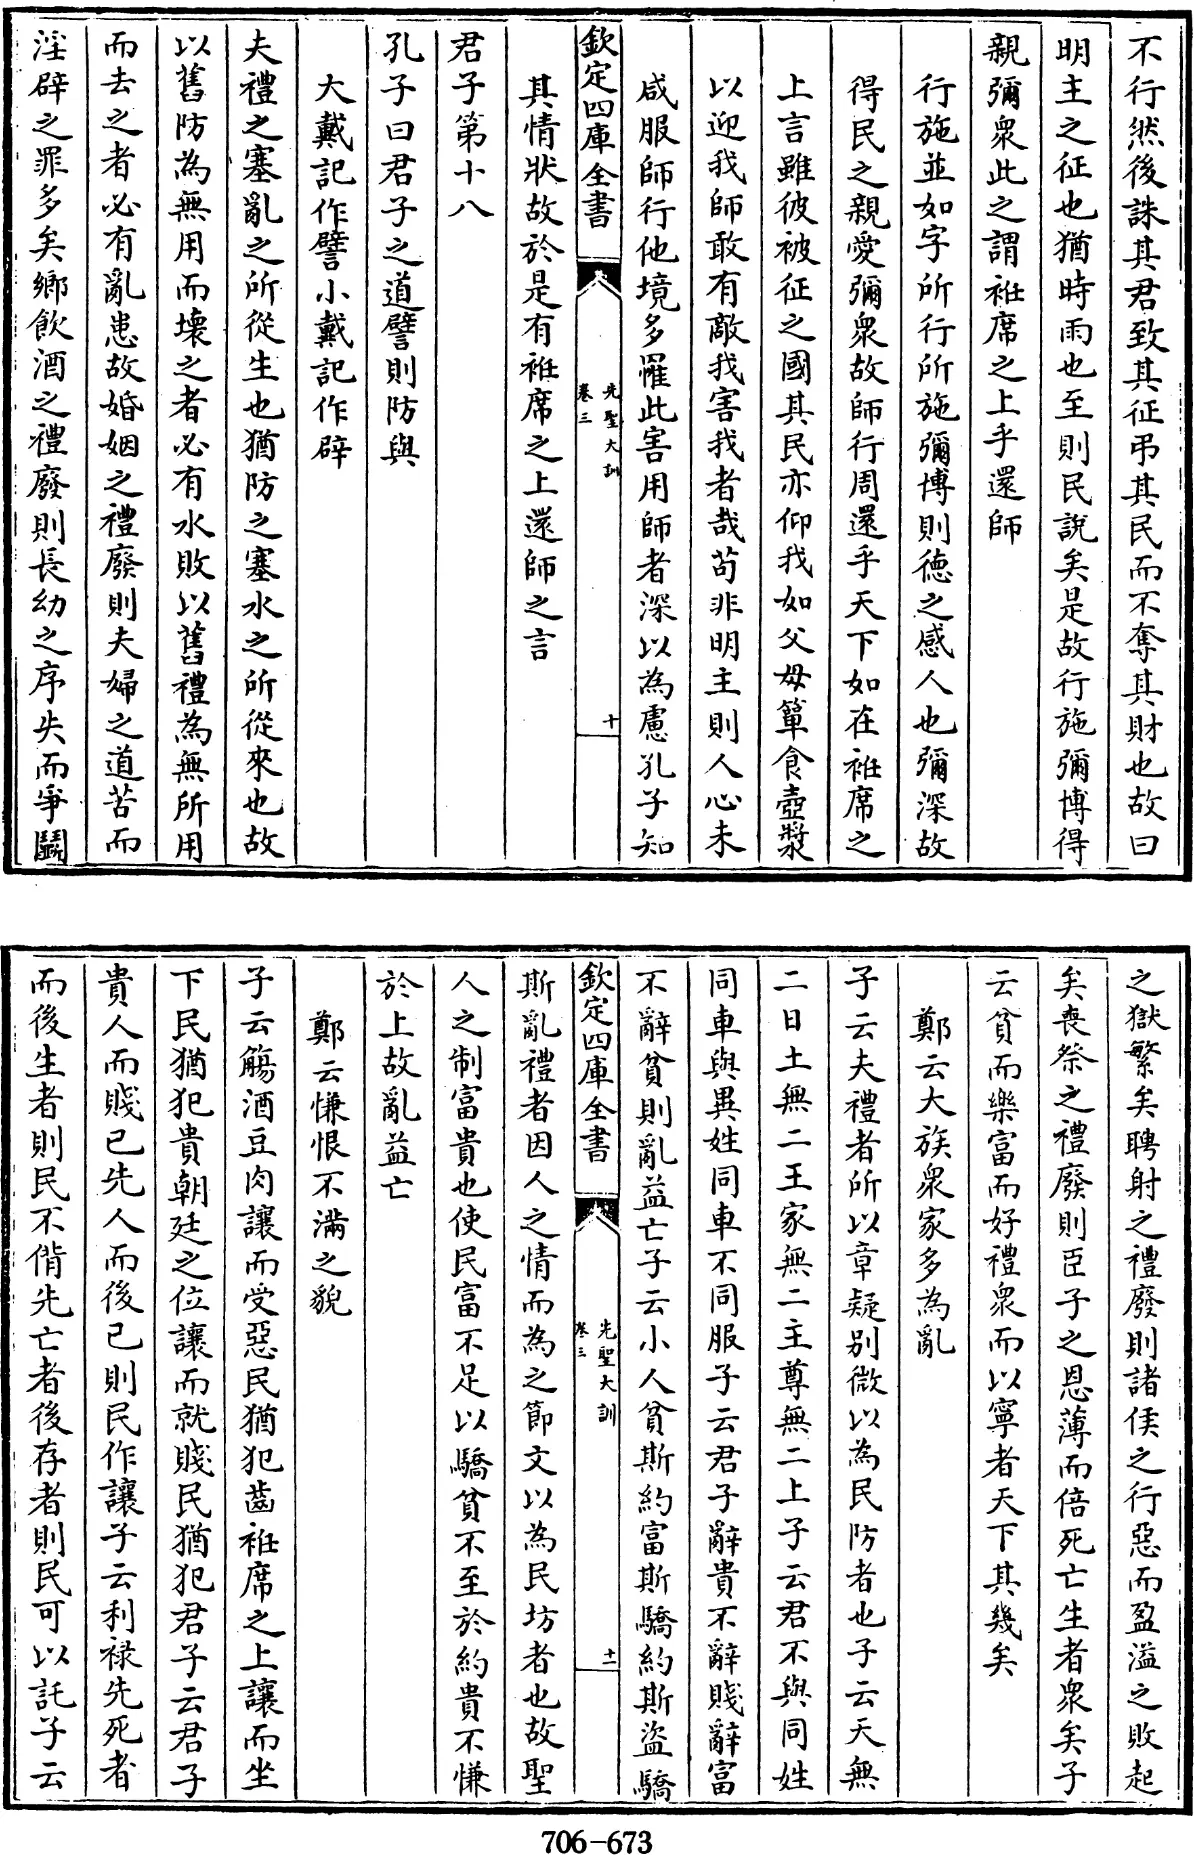 不行然後誅其君致其征弔其民而不奪其財也故曰
明主之征也猶時雨也至則民說矣是故行施彌博得
親彌衆此之謂袵席之上乎還師
行施並如字所行所施彌博則德之感人也彌深故
得民之親愛彌衆故師行周還乎天下如在袵席之
上言雖彼被征之國其民亦仰我如父母簞食壺漿
以迎我師敢有敵我害我者哉苟非明主則人心未
咸服師行他境多罹此害用師者深以為慮孔子知
欽定四庫全書
先聖大訓
卷三
十
其情狀故於是有袵席之上還師之言
君子第十八
孔子曰君子之道譬則防與
大戴記作譬小戴記作辟
夫禮之塞亂之所從生也猶防之塞水之所從來也故
以舊防為無用而壞之者必有水敗以舊禮為無所用
而去之者必有亂患故婚姻之禮廢則夫婦之道苦而
淫辟之罪多矣鄉飲酒之禮廢則長幼之序失而爭鬭
之獄繁矣聘射之禮廢則諸侯之行惡而盈溢之敗起
矣喪祭之禮廢則臣子之恩薄而倍死亡生者衆矣子
云貧而樂富而好禮衆而以寧者天下其幾矣
鄭云大族衆家多為亂
子云夫禮者所以章疑別微以為民防者也子云天無
二日土無二王家無二主尊無二上子云君不與同姓
同車與異姓同車不同服子云君子辭貴不辭賤辭富
不辭貧則亂益亡子云小人貧斯約富斯驕約斯盜驕
欽定四庫全書
先聖大訓
卷三
十一
斯亂禮者因人之情而為之節文以為民坊者也故聖
人之制富貴也使民富不足以驕貧不至於約貴不慊
於上故亂益亡
鄭云慊恨不滿之貌
子云觴酒豆肉讓而受惡民猶犯齒袵席之上讓而坐
下民猶犯貴朝廷之位讓而就賤民猶犯君子云君子
貴人而賤已先人而後已則民作讓子云利祿先死者
而後生者則民不偝先亡者後存者則民可以託子云
706-673